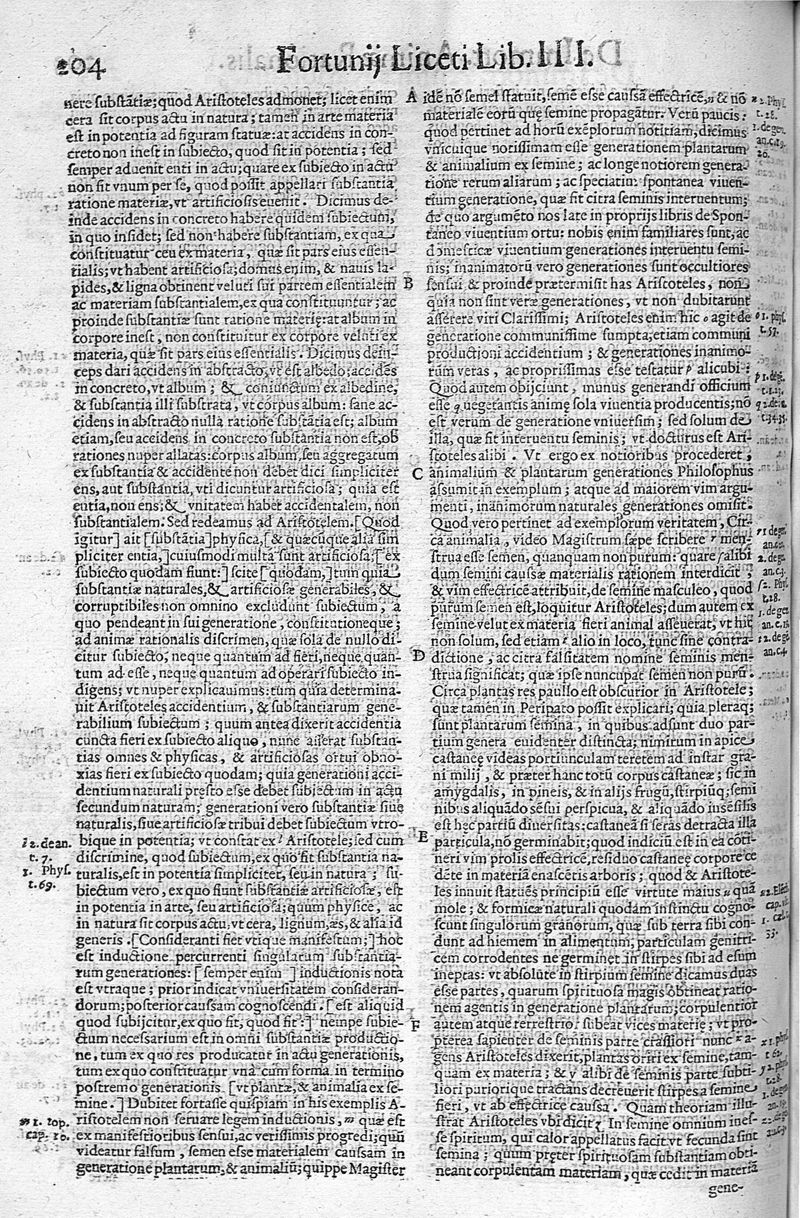 204 Fortunij Liceti Lib. III.
nere substātiæ; quod Aristoteles admonet; licet enim
cera sit corpus actu in natura; tamen in arte materia
est in potentia ad figuram statuæ: at accidens in con-
creto non inest in subiecto, quod sit in potentia; sed
semper aduenit enti in actu; quare ex subiecto in actu
non sit vnum per se, quod possit appellari substantia
ratione materiæ, vt artificiosis euenit. Dicimus de-
inde accidens in concreto habere quidem subiectum,
in quo insidet; sed non habere substantiam, ex qua
constituatur ceu ex materia, quæ sit pars eius essen-
tialis; vt habent artificiosa; domus enim, & nauis la-
pides, & ligna obtinent veluti sui partem essentialem
ac materiam substantialem, ex qua constituuntur; ac
proinde substantiæ sunt ratione materię: at album in
corpore inest, non constituitur ex corpore veluti ex
materia, quæ sit pars eius essentialis. Dicimus dein-
ceps dari accidens in abstracto, vt est albedo; accidēs
in concreto, vt album; & coniunctum ex albedine,
& substantia illi substrata, vt corpus album: sane ac-
cidens in abstracto nulla ratione substātia est; album
etiam, seu accidens in concreto substantia non est, ob
rationes nuper allatas: corpus album, seu aggregatum
ex substantia & accidente non debet dici simpliciter
ens, aut substantia, vti dicuntur artificiosa; quia est
entia, non ens; & vnitatem habet accidentalem, non
substantialem. Sed redeamus ad Aristotelem. [Quod
igitur] ait [substātia] physica, [& quæcūque alia sim
pliciter entia,] cuiusmodi multa sunt artificiosa, [ex
subiecto quodam fiunt:] scite [quodam,] tum quia
substantiæ naturales, & artificiosæ generabiles, &
corruptibiles non omnino excludunt subiectum, a
quo pendeant in sui generatione, constitutioneque;
ad animæ rationalis discrimen, quæ sola de nullo di-
citur subiecto, neque quantum ad fieri, neque quan-
tum ad esse, neque quantum ad operari subiecto in-
digens; vt nuper explicauimus: tum quia determina-
uit Aristoteles accidentium, & substantiarum gene-
rabilium subiectum; quum antea dixerit accidentia
cuncta fieri ex subiecto aliquo, nunc asserat substan-
tias omnes & physicas, & artificiosas ortui obno-
xias fieri ex subiecto quodam; quia generationi acci-
dentium naturali presto esse debet subiectum in actu
secundum naturam; generationi vero substantiæ siue
naturalis, siue artificiosæ tribui debet subiectum vtro-
bique in potentia; vt constat ex Aristotele; sed cum
discrimine, quod subiectum, ex quo fit substantia na-
turalis, est in potentia simpliciter, seu in natura; su-
biectum vero, ex quo fiunt substantiæ artificiosæ, est
in potentia in arte, seu artificiosa; quum physice, ac
in natura sit corpus actu, vt cera, lignum, æs, & alia id
generis. [Consideranti fiet vtique manifestum;] hoc
est inductione percurrenti singularum substantia-
rum generationes: [semper enim] inductionis nota
est vtraque; prior indicat vniuersitatem consideran-
dorum; posterior causam cognoscendi. [est aliquid
quod subijcitur, ex quo fit, quod fit:] nempe subie-
ctum necessarium est in omni substantiæ productio-
ne, tum ex quo res producatur in actu generationis,
tum ex quo constituatur vna cum forma in termino
postremo generationis. [vt plantæ, & animalia ex se-
mine.] Dubitet fortasse quispiam in his exemplis A-
ristotelem non seruare legem inductionis, quæ est
ex manifestioribus sensui, ac verissimis progredi; quū
videatur falsum, semen esse materialem causam in
generatione plantarum, & animaliū; quippe Magister
i 2. de an.
t. 7.
1. Phys.
t. 69.
1. top.
cap. 10.
A
B
C
D
E
F
idē nō semel statuit, semē esse causā effectricē, & nō
materiale eorū quę semine propagātur. Verū paucis:
quod pertinet ad horū exēplorum notitiam, dicimus
vnicuique notissimam esse generationem plantarum
& animalium ex semine; ac longe notiorem genera-
tione rerum aliarum; ac speciatim spontanea viuen-
tium generatione, quæ fit citra seminis interuentum;
de quo argumēto nos late in proprijs libris de Spon-
taneo viuentium ortu: nobis enim familiares sunt, ac
domesticæ viuentium generationes interuentu semi-
nis; inanimatorū vero generationes sunt occultiores
sensui & proinde prætermisit has Aristoteles, non
quia non sint veræ generationes, vt non dubitarunt
asserere viri Clarissimi; Aristoteles enim hic agit de
generatione communissime sumpta, etiam communi
productioni accidentium; & generationes inanimo-
rum veras, ac proprijssimas esse testatur alicubi:
Quod autem obijciunt, munus generandi officium
esse vegetantis animę sola viuentia producentis; nō
est verum de generatione vniuersim; sed solum de
illa, quæ fit interuentu seminis; vt docturus est Ari-
stoteles alibi. Vt ergo ex notioribus procederet,
animalium & plantarum generationes Philosophus
assumit in exemplum; atque ad maiorem vim argu-
menti, inanimorum naturales generationes omisit.
Quod vero pertinet ad exemplorum veritatem, Cir-
ca animalia, video Magistrum sæpe scribere men-
strua esse semen, quanquam non purum: quare alibi
dum semini causæ materialis rationem interdicit,
& vim effectricē attribuit, de semine masculeo, quod
purum semen est, loquitur Aristoteles; dum autem ex
semine velut ex materia fieri animal asseuerat, vt hic
non solum, sed etiam alio in loco, tunc sine contra-
dictione, ac citra falsitatem nomine seminis men-
strua significat; quæ ipse nuncupat semen non purū.
Circa plantas res paullo est obscurior in Aristotele;
quæ tamen in Peripato possit explicari; quia pleraq;
sunt plantarum semina, in quibus adsunt duo par-
tium genera euidenter distincta; nimirum in apice
castaneę videas portiunculam teretem ad instar gra-
ni milij, & præter hanc totū corpus castaneæ; sic in
amygdalis, in pineis, & in alijs frugū, stirpiūq; semi
nibus aliquādo sēsui perspicua, & aliquādo insēsilis
est hęc partiū diuersitas: castaneā si seras detracta illa
particula, nō germinabit; quod indiciū est in ea cōti-
neri vim prolis effectricē, residuo castaneę corpore ce
dēte in materiā enascētis arboris; quod & Aristote-
les innuit statuēs principiū esse virtute maius quā
mole; & formicæ naturali quodam instinctu cogno-
scunt singulorum granorum, quæ sub terra sibi con-
dunt ad hiemem in alimentum, particulam genitri-
cem corrodentes ne germinet in stirpes sibi ad esum
ineptas: vt absolute in stirpium semine dicamus duas
esse partes, quarum spirituosa magis obtineat ratio-
nem agentis in generatione plantarum; corpulentior
autem atque terrestrior subeat vices materię; vt pro-
pterea sapienter de seminis parte crassiori nunc a-
gens Aristoteles dixerit, plantas oriri ex semine, tam-
quam ex materia; & alibi de seminis parte subti-
liori puriorique tractans decreuerit stirpes a semine
fieri, vt ab effectrice causa. Quam theoriam illu-
strat Aristoteles vbi dicit In semine omnium ines-
se spiritum, qui calor appellatus facit vt fecunda sint
semina; quum pręter spirituosam substantiam obti-
neant corpulentam materiam, quæ cedit in materiā
gene-